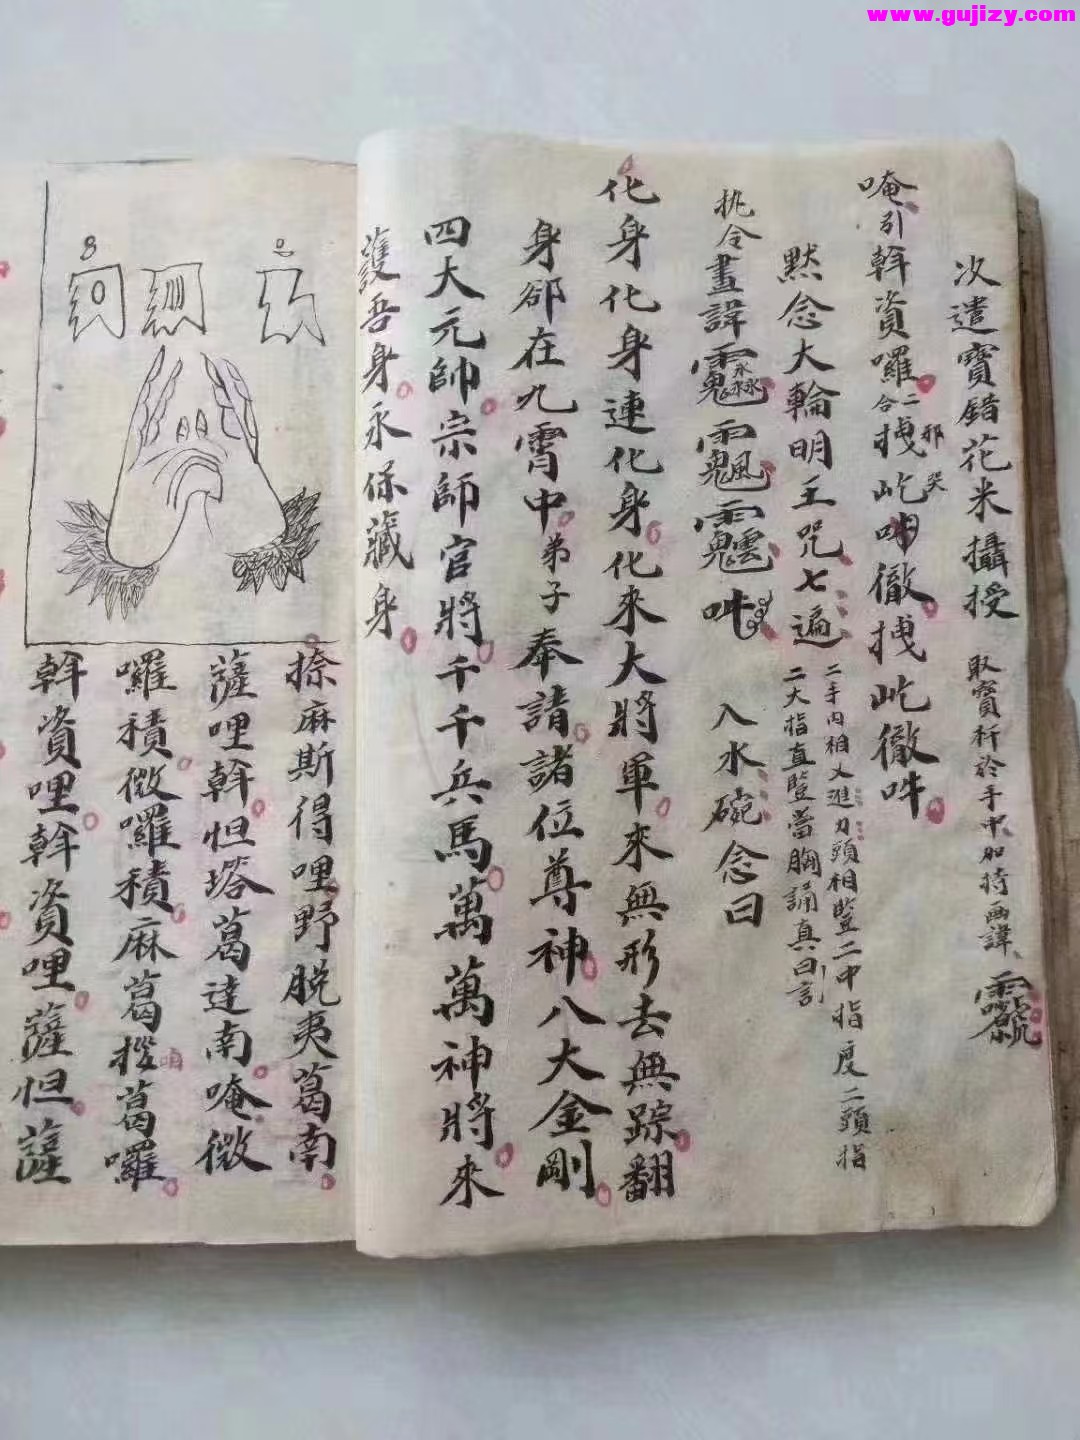 www.gujizy.com
次遣寶錯花米攝授 取寶杆於手中加持画諱
唵引斡資囉二合拽屹吽徹拽屹徹吽
默念大輪明王咒七遍 二手内相叉進刀頭相竪二中指度二頭指
二大指直竪當胸誦真曰言
挑令畫諱 吽 入水碗念曰
化身化身連化身化來大將軍來無形去無踪翻
身郤在九霄中弟子奉請諸位尊神八大金剛
四大元帥宗師官將千千兵馬萬萬神將來
護吾身永保藏身
捺麻斯得哩野脱夷葛南
薩哩斡怛塔葛達南唵微
囉積微囉積麻葛拶葛囉
斡資哩斡資哩薩怛薩